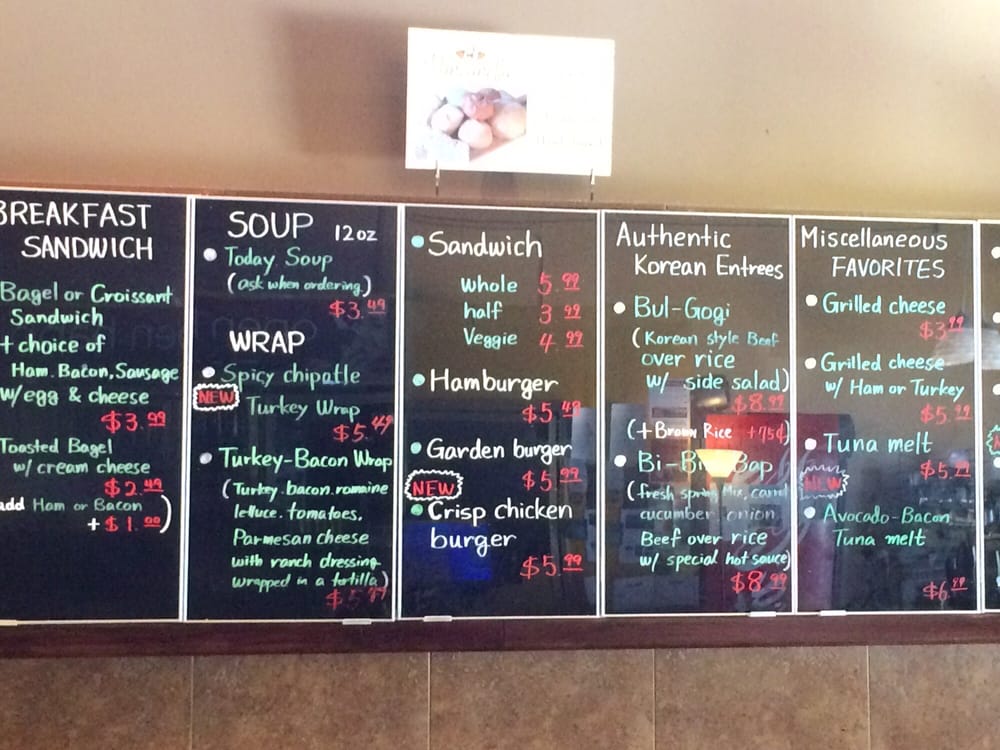 BREAKFAST
SANDWICH
Bagel or Croissant
Sandwich
+ choice of
Ham. Bacon, Sausage
w/egg & cheese
$3.99
Toasted Bagel
w/ cream cheese
$2.49
add Ham or Bacon
+ $1.00)
SOUP 12oz
Today Soup
(ask when ordering)
$3.49
WRAP
Spicy chipotle
NEW
Turkey Wrap
$5.49
Turkey-Bacon Wrap
(Turkey. bacon. romaine
lettuce. tomatoes.
Parmesan cheese
with ranch dressing
wrapped in a tortilla)
$5.99
Sandwich
Whole 5.99
half 3 99
Veggie 4.99
Hamburger
$5.49
Garden burger
$5.99
NEW
Crisp chicken
burger
$5.99
Authentic
Korean Entrees
Bul-Gogi
(Korean style Beef
over rice
w/ side salad)
$8.99
(+Brown Rice +75¢)
Bi-Bim Bap
(fresh spring Mix, carrot
cucumber onion
Beef over rice
w/ special hot sauce)
$8.99
Miscellaneous
FAVORITES
Grilled cheese
$3.99
Grilled cheese
w/ Ham or Turkey
$5.99
Tuna melt
$5.99
NEW
Avocado-Bacon
Tuna melt
$6.99